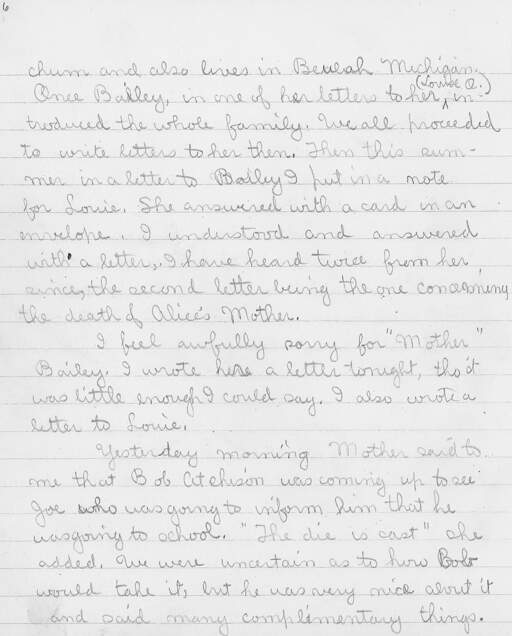 6
chum and also lives in Beulah Michigan.
(Louise O.)
Once Bailey, in one of her letters to her, in-
troduced the whole family. We all proceeded
to write letters to her then. Then this sum-
mer in a letter to Bailey I put in a note
for Louie. She answered with a card in an
envelope. I understood and answered
with a letter. I have heard twice from her
since, the second letter being the one concerning
the death of Alice's Mother.
I feel awfully sorry for "Mother"
Bailey. I wrote her a letter tonight, tho it
was little enough I could say. I also wrote a
letter to Louie.
Yesterday morning Mother said to
me that Bob Atchison was coming up to see
Joe who was going to inform him that he
was going to school. "The die is cast" she
added. We were uncertain as to how Bob
would take it, but he was very nice about it
and said many complimentary things.